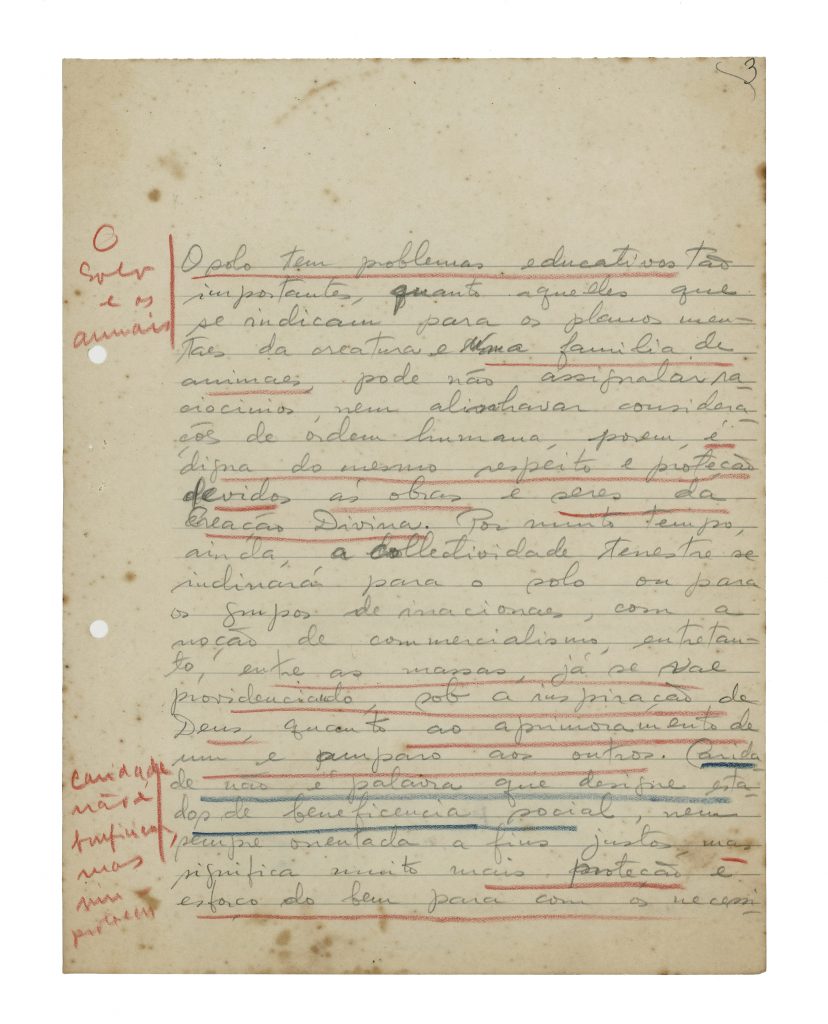 3
O
solo
e os
animais
O solo tem problemas educativos tão
importantes, quanto aquelles que
se indicam para os planos men-
taes da creatura e uma familia de
animaes, pode não assignalar ra
ciocinios, nem alinhavar considera-
ções de ordem humana, porem, é
digna do mesmo respeito e proteção
devidos ás obras e seres da
Creação Divina. Por muito tempo,
ainda, a collectividade terrestre se
inclinará para o solo ou para
os grupos de irracionaes, com a
noção de commercialismo, entretan-
to, entre as massas, já se vae
providenciando, sob a inspiração de
Deus, quanto ao aprimoramento de
um e amparo aos outros. Carida-
de não é palavra que designe esta-
dos de beneficencia social, nem
sempre orientada a fins justos, mas
significa muito mais proteção e
esforço do bem para com os necessi-
Caridade
não é
mas
sim